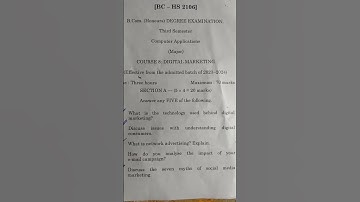 [BC – HS 2106]
B.Com. (Honours) DEGREE EXAMINATION.
Third Semester
Computer Applications
(Major)
COURSE 8: DIGITAL MARKETING
(Effective from the admitted batch of 2023–2024)
: Three hours Maximum : 70 marks
SECTION A — (5 × 4 = 20 marks)
Answer any FIVE of the following.
What is the technology used behind digital
marketing?
Discuss issues with understanding digital
consumers.
What is network advertising? Explain.
How do you analyse the impact of your
e-mail campaign?
Discuss the seven myths of social media
marketing.